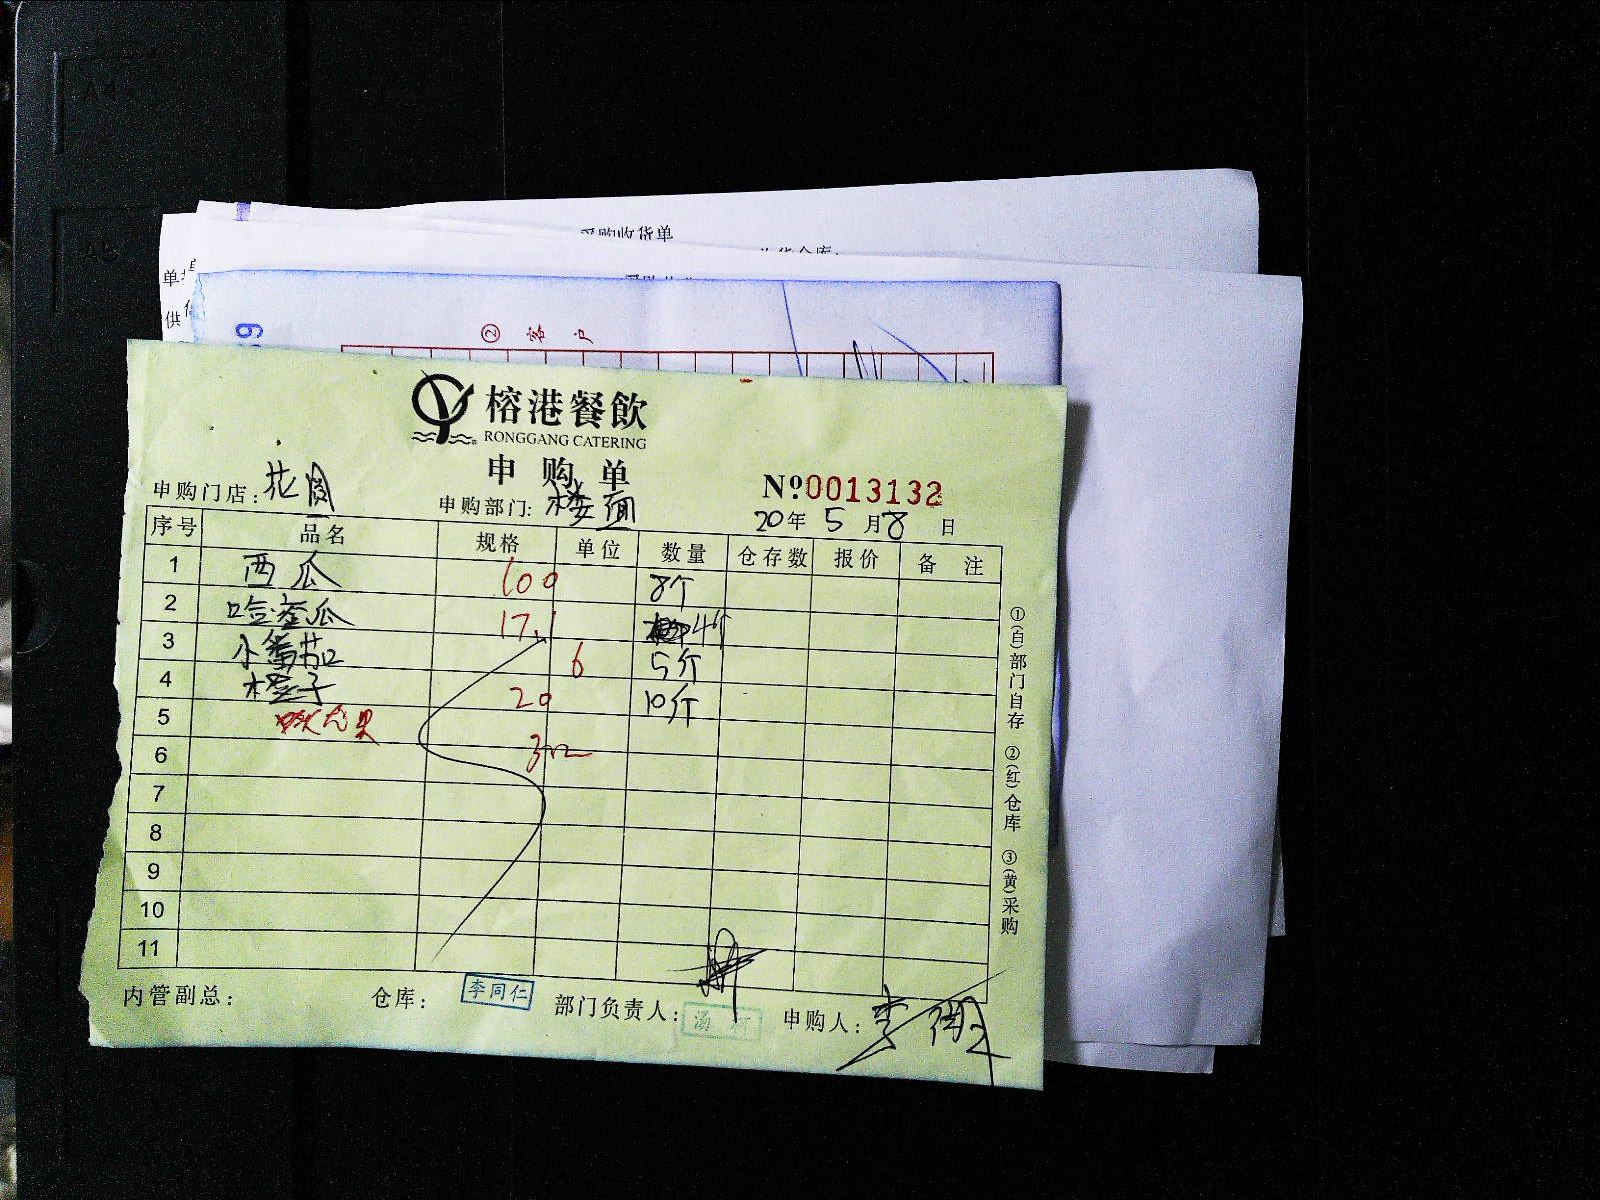 A4
A5
采购收货单
单
供
② 客 户
榕港餐飲
RONGGANG CATERING
申 购 单
№0013132
申购门店：花园
申购部门：楼面
20年 5 月 8 日
序号 品名 规格 单位 数量 仓存数 报价 备 注
1 西瓜 100 8个
2 哈蜜瓜 17 4个
3 小番茄 6 5斤
4 橙子 20 10斤
5
6
7
8
9
10
11
①(白)部门自存 ②(红)仓库 ③(黄)采购
内管副总： 仓库：李同仁 部门负责人： 申购人：李